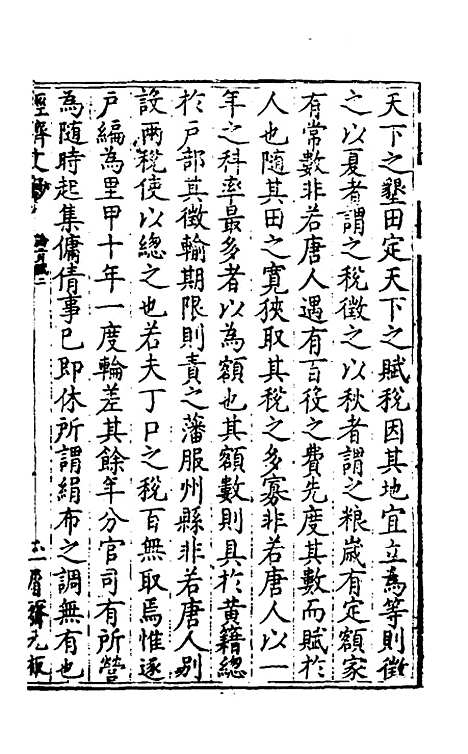 天下之墾田定天下之賦稅因其地宜立為等則徵
之以夏者謂之稅徵之以秋者謂之粮歲有定額家
有常數非若唐人遇有百役之費先度其數而賦於
人也隨其田之寬狹取其稅之多寡非若唐人以一
年之科率最多者以為額也其額數則具於黃籍總
於戶部其徵輸期限則責之藩服州縣非若唐人別
設兩稅使以總之也若夫丁口之稅百無取焉惟逐
戶編為里甲十年一度輪差其餘年分官司有所營
為隨時起集傭倩事已即休所謂絹布之調無有也
經濟文